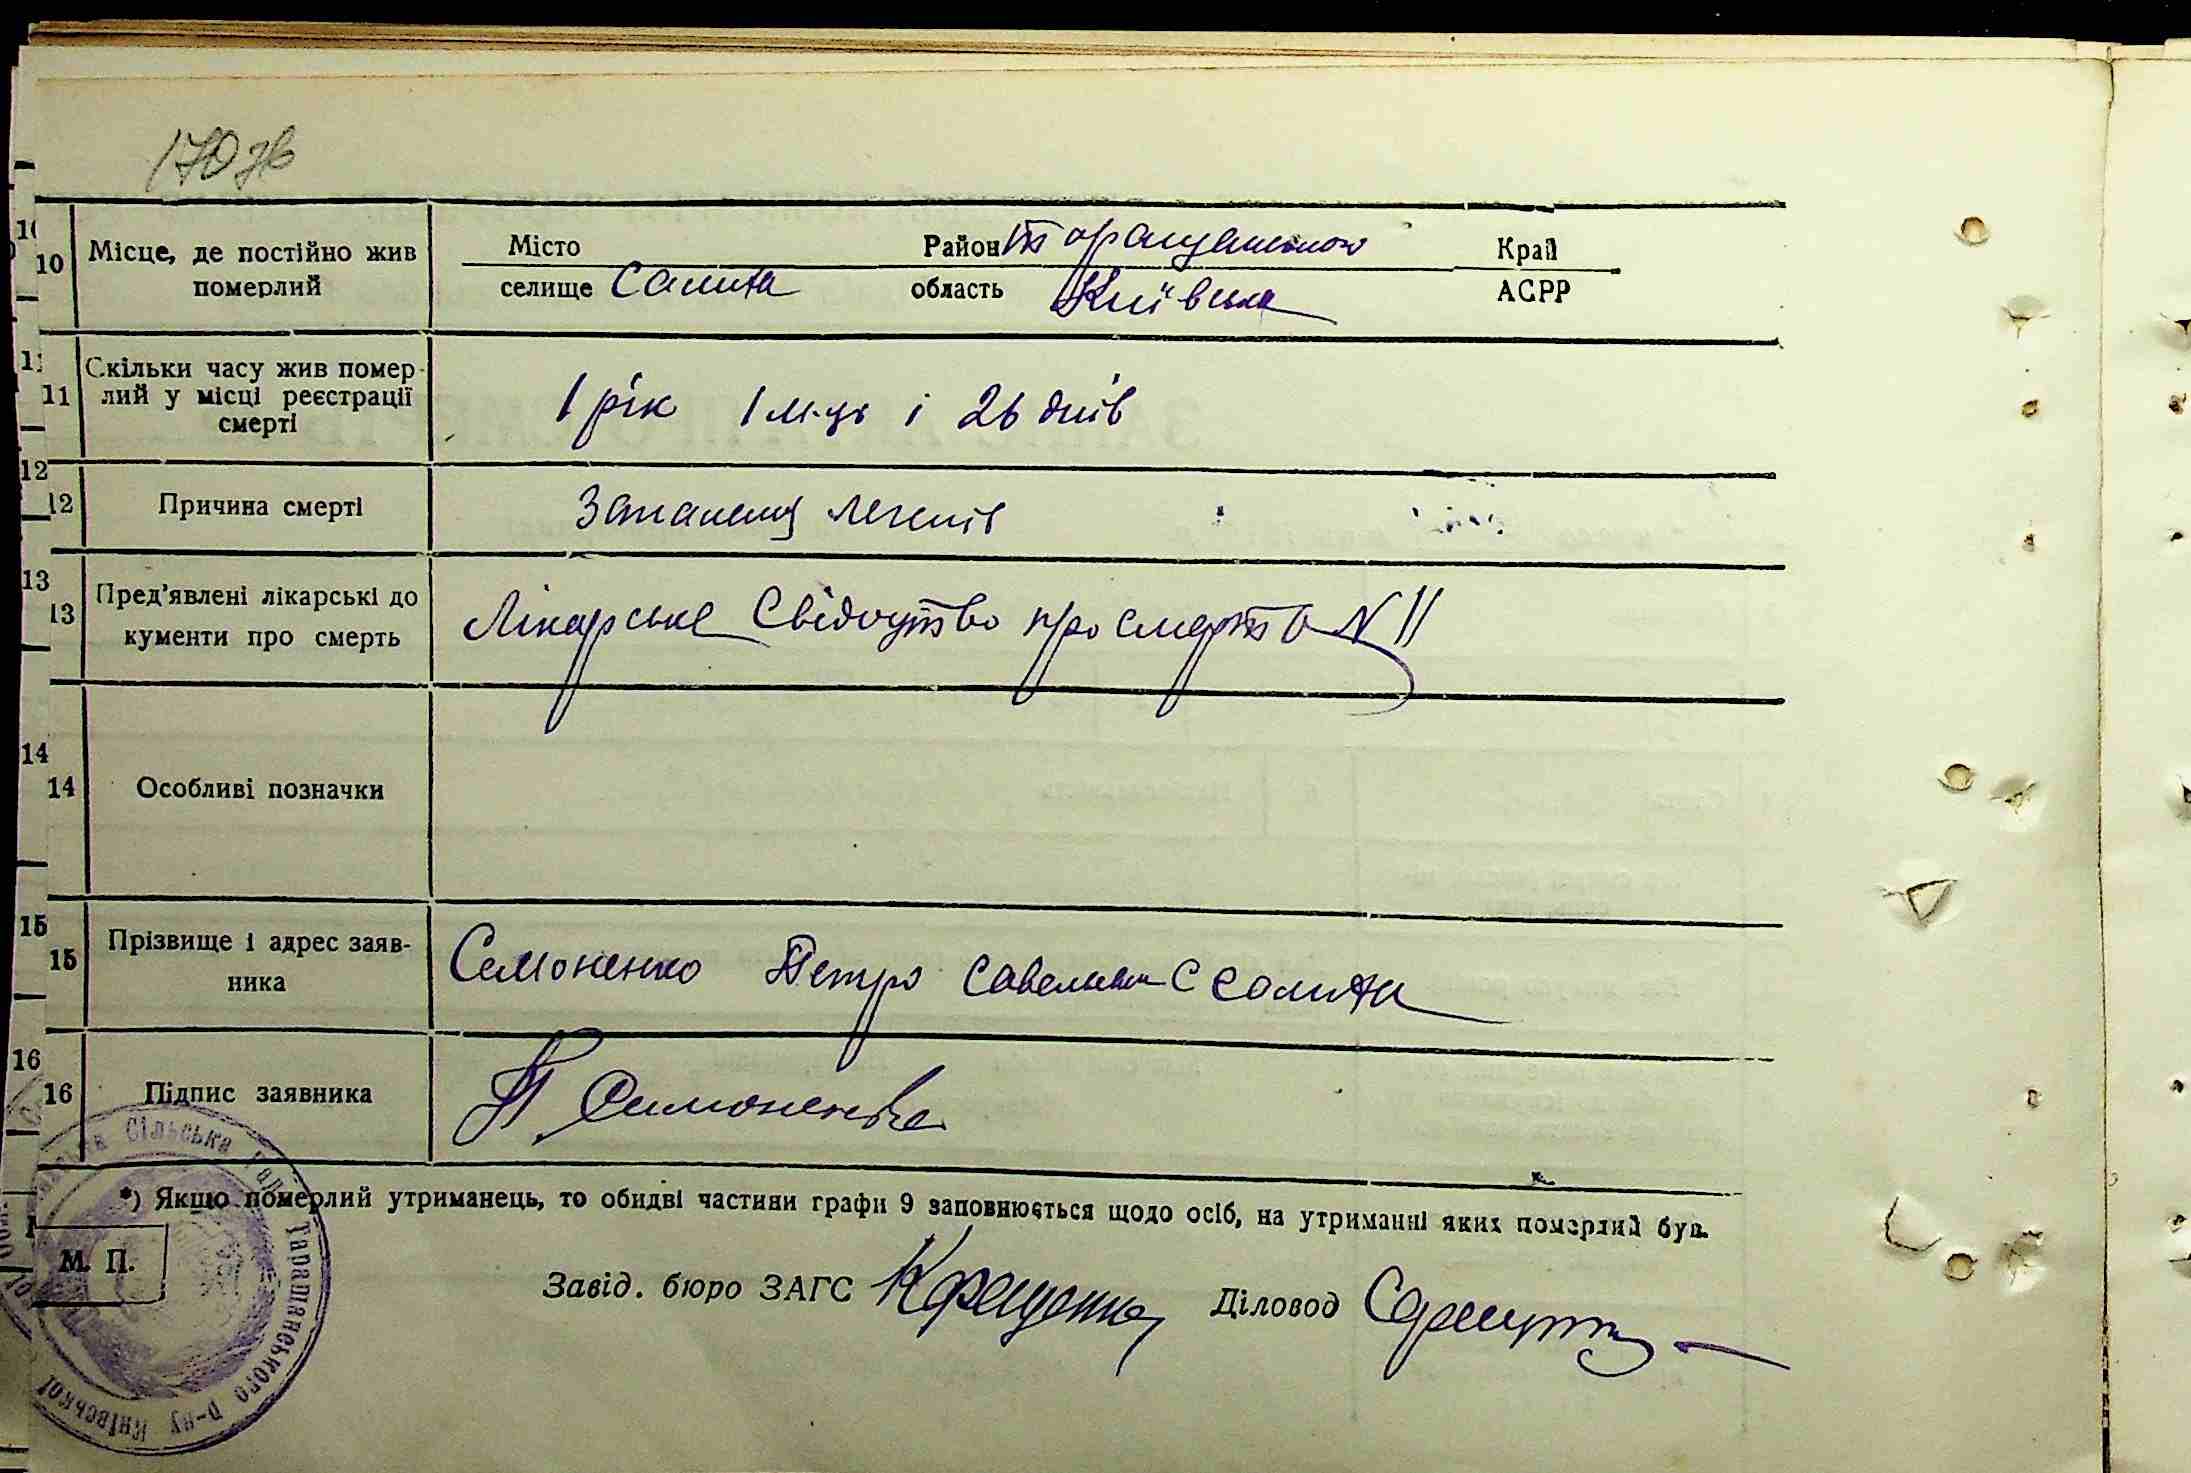 170 зв
10 Місце, де постійно жив померлий
Місто Район Таращанського Край
селище Салиха область Київська АСРР
11 Скільки часу жив помер-
лий у місці реєстрації
смерті
1 рік 1 м-ць і 26 днів
12 Причина смерті Запалення легенів
13 Пред'явлені лікарські до
кументи про смерть
Лікарське свідоцтво про смерть N 11
14 Особливі позначки
15 Прізвище і адрес заяв-
ника
Симоненко Петро Савельевич с Салиха
16 Підпис заявника П Симоненко
*) Якщо померлий утриманець, то обидві частини графи 9 заповнюється щодо осіб, на утриманні яких померлий був.
М. П.
Завід. бюро ЗАГС Діловод
Сільська Рада Таращанського р-ну Київської